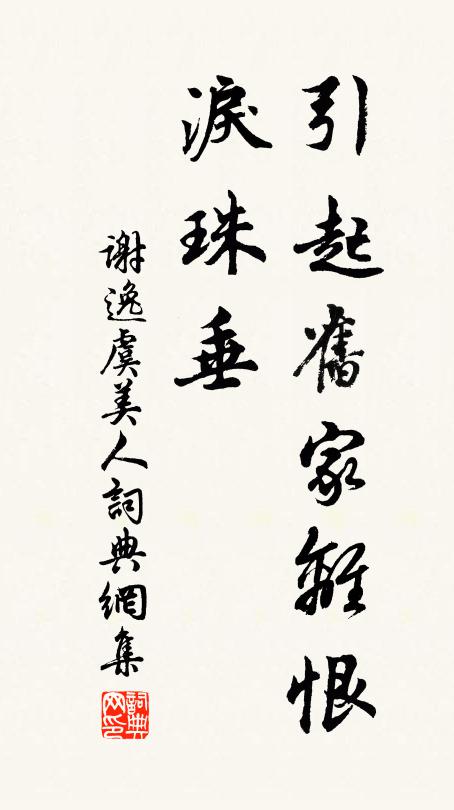 引起舊家離恨
淚珠垂
謝逸虞美人詞典網集
詞典网印